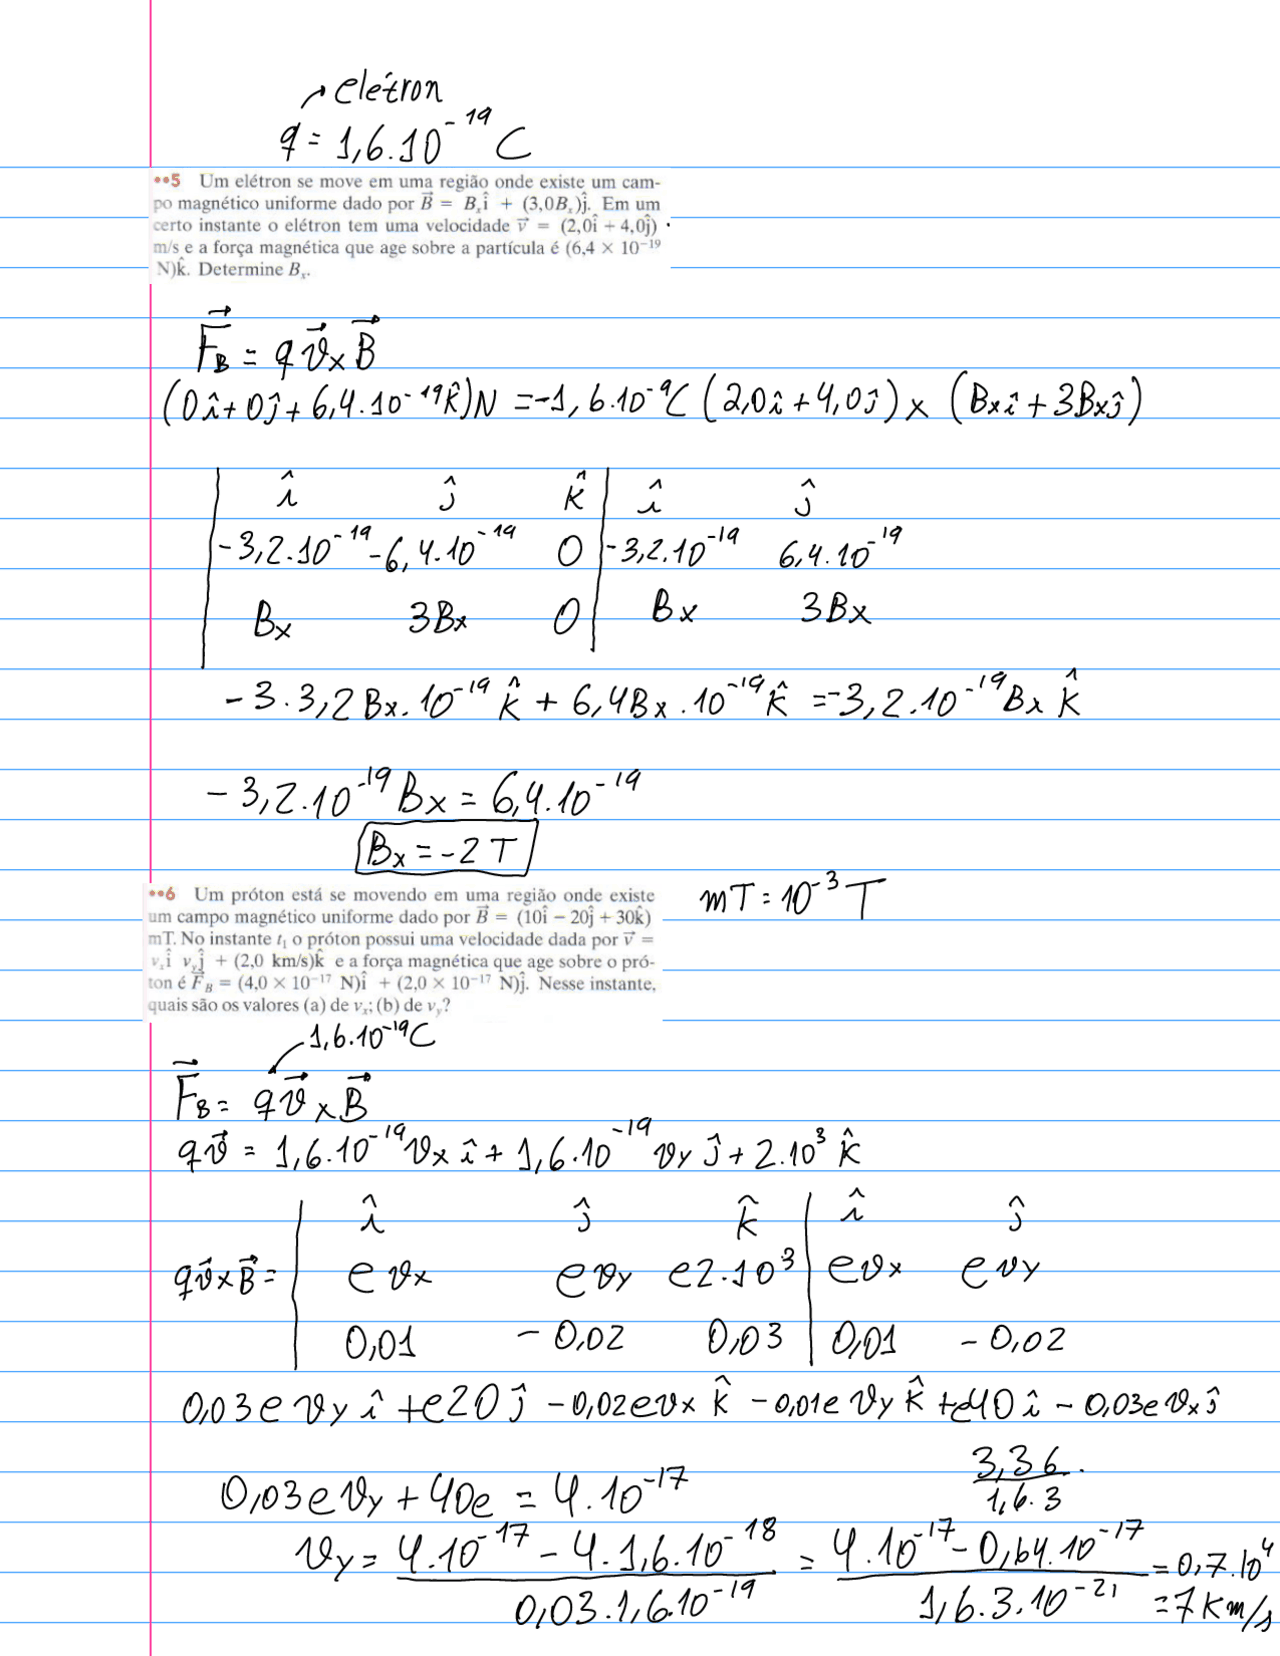 elétron
q = 1,6.10⁻¹⁹ C
••5 Um elétron se move em uma região onde existe um cam-
po magnético uniforme dado por B⃗ = Bₓî + (3,0Bₓ)ĵ. Em um
certo instante o elétron tem uma velocidade v⃗ = (2,0î + 4,0ĵ)
m/s e a força magnética que age sobre a partícula é (6,4 × 10⁻¹⁹
N)k̂. Determine Bₓ.
F⃗_B = q v⃗ x B⃗
(0î + 0ĵ + 6,4.10⁻¹⁹k̂)N = -1,6.10⁻⁹C (2,0î + 4,0ĵ) x (Bxî + 3Bxĵ)
î ĵ k̂ | î ĵ
-3,2.10⁻¹⁹ -6,4.10⁻¹⁹ 0 | -3,2.10⁻¹⁹ 6,4.10⁻¹⁹
Bx 3Bx 0 | Bx 3Bx
-3.3,2Bx.10⁻¹⁹ k̂ + 6,4Bx.10⁻¹⁹ k̂ = -3,2.10⁻¹⁹ Bx k̂
-3,2.10⁻¹⁹ Bx = 6,4.10⁻¹⁹
Bx = -2 T
••6 Um próton está se movendo em uma região onde existe
um campo magnético uniforme dado por B⃗ = (10î − 20ĵ + 30k̂)
mT. No instante t₁ o próton possui uma velocidade dada por v⃗ =
vₓî v_yĵ + (2,0 km/s)k̂ e a força magnética que age sobre o pró-
ton é F⃗_B = (4,0 × 10⁻¹⁷ N)î + (2,0 × 10⁻¹⁷ N)ĵ. Nesse instante,
quais são os valores (a) de vₓ; (b) de v_y?
mT = 10⁻³ T
1,6.10⁻¹⁹C
F⃗_B = q v⃗ x B⃗
q v⃗ = 1,6.10⁻¹⁹ vx î + 1,6.10⁻¹⁹ vy ĵ + 2.10³ k̂
î ĵ k̂ | î ĵ
q v⃗ x B⃗ = e vx e vy e2.10³ | e vx e vy
0,01 - 0,02 0,03 | 0,01 - 0,02
0,03e vy î + e20 ĵ - 0,02e vx k̂ - 0,01e vy k̂ + e40 î - 0,03e vx ĵ
0,03e vy + 40e = 4.10⁻¹⁷
3,36 / 1,6.3
vy = (4.10⁻¹⁷ - 4.1,6.10⁻¹⁸) / (0,03.1,6.10⁻¹⁹) = (4.10⁻¹⁷ - 0,64.10⁻¹⁷) / (1,6.3.10⁻²¹) = 0,7.10⁴
= 7 km/s